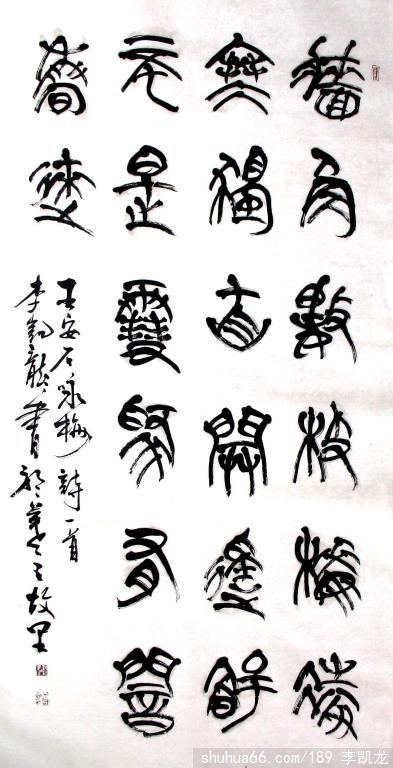 牆角數枝梅凌
寒獨自開遙知
不是雪為有暗
香來
王安石咏梅詩一首
李凱龍書於羲之故里
shuhua66.com/189 李凯龙